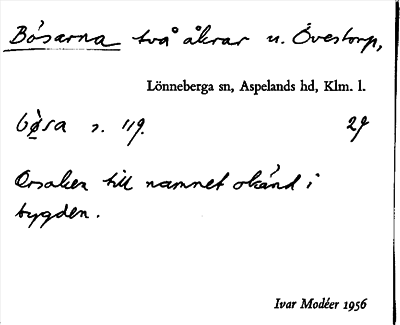 Bösarna två åkrar u. Övestorp,
Lönneberga sn, Aspelands hd, Klm. l.
bøsa s. 119. 29
Orsaken till namnet okänd i
bygden.
Ivar Modéer 1956